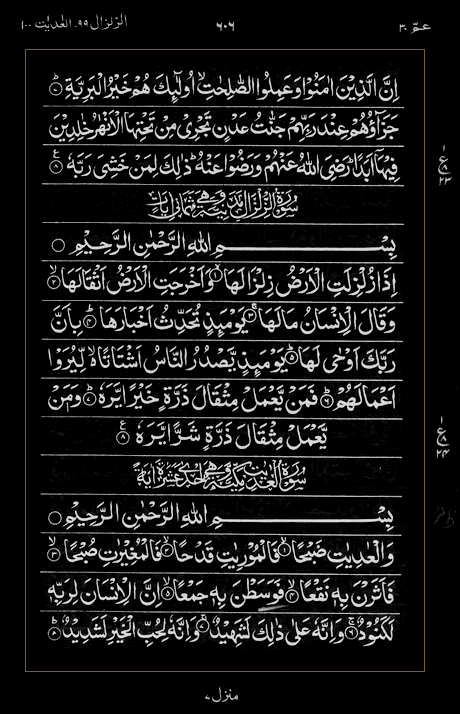 عمّ ٣٠ ٦٠٦ الزلزال ٩٩۔ العٰديٰت ١٠٠
اِنَّ الَّذِيْنَ اٰمَنُوْا وَعَمِلُوا الصّٰلِحٰتِ ۙ اُولٰٓئِكَ هُمْ خَيْرُ الْبَرِيَّةِ ؕ﴿۷﴾
جَزَآؤُهُمْ عِنْدَ رَبِّهِمْ جَنّٰتُ عَدْنٍ تَجْرِيْ مِنْ تَحْتِهَا الْاَنْهٰرُ خٰلِدِيْنَ
فِيْهَاۤ اَبَدًا ؕ رَضِيَ اللّٰهُ عَنْهُمْ وَرَضُوْا عَنْهُ ؕ ذٰلِكَ لِمَنْ خَشِيَ رَبَّهٗ ﴿۸﴾
ع ٨ ٢٣
سُوْرَةُ الزِّلْزَالِ مَدَنِيَّةٌ وَّهِيَ ثَمَانُ اٰيَاتٍ
بِسْمِ اللّٰهِ الرَّحْمٰنِ الرَّحِيْمِ
اِذَا زُلْزِلَتِ الْاَرْضُ زِلْزَالَهَا ۙ﴿۱﴾ وَاَخْرَجَتِ الْاَرْضُ اَثْقَالَهَا ۙ﴿۲﴾
وَقَالَ الْاِنْسَانُ مَا لَهَا ۚ﴿۳﴾ يَوْمَئِذٍ تُحَدِّثُ اَخْبَارَهَا ؕ﴿۴﴾ بِاَنَّ
رَبَّكَ اَوْحٰى لَهَا ؕ﴿۵﴾ يَوْمَئِذٍ يَّصْدُرُ النَّاسُ اَشْتَاتًا ۙ لِّيُرَوْا
اَعْمَالَهُمْ ؕ﴿۶﴾ فَمَنْ يَّعْمَلْ مِثْقَالَ ذَرَّةٍ خَيْرًا يَّرَهٗ ؕ﴿۷﴾ وَمَنْ
يَّعْمَلْ مِثْقَالَ ذَرَّةٍ شَرًّا يَّرَهٗ ﴿۸﴾
ع ٨ ٢٤
سُوْرَةُ الْعٰدِيٰتِ مَكِّيَّةٌ وَّهِيَ اِحْدٰى عَشْرَةَ اٰيَةً
بِسْمِ اللّٰهِ الرَّحْمٰنِ الرَّحِيْمِ
وَالْعٰدِيٰتِ ضَبْحًا ۙ﴿۱﴾ فَالْمُوْرِيٰتِ قَدْحًا ۙ﴿۲﴾ فَالْمُغِيْرٰتِ صُبْحًا ۙ﴿۳﴾
فَاَثَرْنَ بِهٖ نَقْعًا ۙ﴿۴﴾ فَوَسَطْنَ بِهٖ جَمْعًا ۙ﴿۵﴾ اِنَّ الْاِنْسَانَ لِرَبِّهٖ
لَكَنُوْدٌ ۚ﴿۶﴾ وَاِنَّهٗ عَلٰى ذٰلِكَ لَشَهِيْدٌ ۚ﴿۷﴾ وَاِنَّهٗ لِحُبِّ الْخَيْرِ لَشَدِيْدٌ ؕ﴿۸﴾
منزل ۷